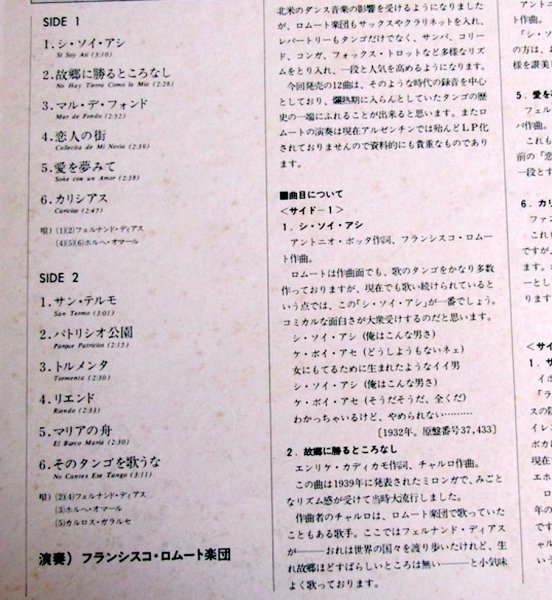 SIDE 1
1. シ・ソイ・アシ
Si Soy Así (3:10)
2. 故郷に勝るところなし
No Hay Tierra Como la Mía (2:28)
3. マル・デ・フォンド
Mar de Fondo (2:52)
4. 恋人の街
Callecita de Mi Novia (2:39)
5. 愛を夢みて
Soñé con un Amor (2:38)
6. カリシアス
Caricias (2:47)
唄) (1)(2)フェルナンド・ディアス
(4)(5)(6)ホルヘ・オマール
SIDE 2
1. サン・テルモ
San Termo (3:01)
2. パトリシオ公園
Parque Patricios (2:15)
3. トルメンタ
Tormenta (2:30)
4. リエンド
Riendo (2:33)
5. マリアの舟
El Barco María (2:30)
6. そのタンゴを歌うな
No Cantes Ese Tango (3:11)
唄) (2)(4)フェルナンド・ディアス
(3)ホルヘ・オマール
(5)カルロス・ガラルセ
演奏) フランシスコ・ロムート楽団
北米のダンス音楽の影響を受けるようになりました
が、ロムート楽団もサックスやクラリネットを入れ、
レパートリーもタンゴだけでなく、サンバ、コリー
ド、コンガ、フォックス・トロットなど多様なリズ
ムをとり入れ、一段と人気を高めるようになります。
今回発売の12曲は、そのような時代の録音を中心
としており、爛熟期に入らんとしていたタンゴの歴
史の一端にふれることが出来ると思います。またロ
ムートの演奏は現在アルゼンチンでは殆んどLP化
されておりませんので資料的にも貴重なものであり
ます。
■曲目について
<サイド－1>
1. シ・ソイ・アシ
アントニオ・ボッタ作詞、フランシスコ・ロムー
ト作曲。
ロムートは作曲面でも、歌のタンゴをかなり多数
作っておりますが、現在でも歌い続けられていると
いう点では、この「シ・ソイ・アシ」が一番でしょう。
コミカルな面白さが大衆受けするのだと思います。
シ・ソイ・アシ（俺はこんな男さ）
ケ・ボイ・アセ（どうしようもないネェ）
女にもてるために生まれたようなイイ男
シ・ソイ・アシ（俺はこんな男さ）
ケ・ボイ・アセ（そうだそうだ、全くだ）
わかっちゃいるけど、やめられない………
〔1932年。原盤番号37,433〕
2. 故郷に勝るところなし
エンリケ・カディカモ作詞、チャルロ作曲。
この曲は1939年に発表されたミロンガで、みごと
なリズム感が受けて当時大流行しました。
作曲者のチャルロは、ロムート楽団で歌っていた
こともある歌手。ここではフェルナンド・ディアス
が――おれは世界の国々を渡り歩いたけれど、生
れ故郷ほどすばらしいところは無い――と小気味
よく歌っております。
ト作曲。
「シ・ソ
の方は、
様を讃美し
5. 愛を夢
フェル
パ作曲。
これも
前の「恋
一段とす
6. カリ
ファン
これも
ですが、
<サイ
1. サ
イホ
「ラ